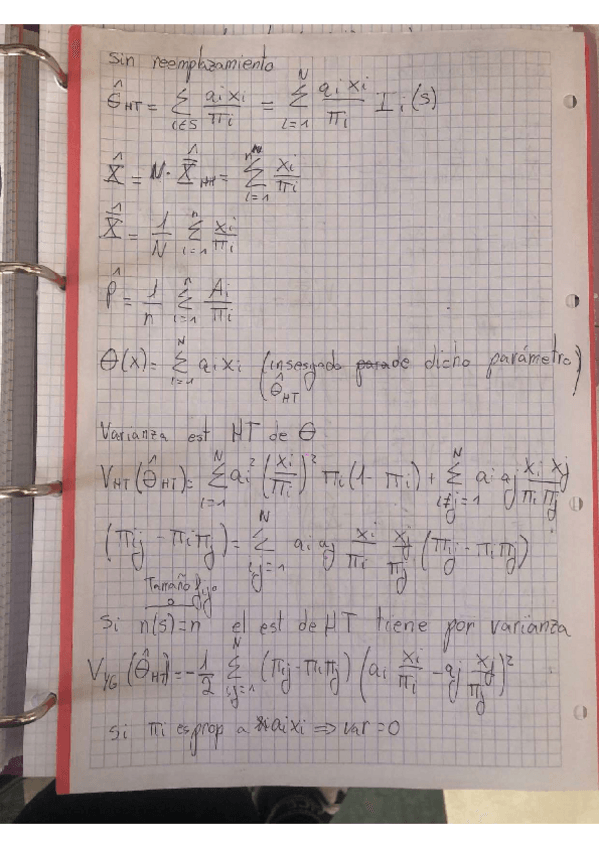 Sin reemplazamiento
Θ̂_HT = Σ_{i∈S} a_i x_i / π_i = Σ_{i=1}^{N} a_i x_i / π_i I_i(s)
X̂ = N · X̄̂_HH = Σ_{i=1}^{n} x_i / π_i
X̄̂ = 1/N Σ_{i=1}^{n} x_i / π_i
P̂ = 1/n Σ_{i=1}^{n} A_i / π_i
Θ(x) = Σ_{i=1}^{N} a_i x_i (insesgado de dicho parámetro)
Θ̂_HT
Varianza est HT de Θ
V_HT(Θ̂_HT) = Σ_{i=1}^{N} a_i² (x_i / π_i)² π_i (1 - π_i) + Σ_{i≠j=1}^{N} a_i a_j x_i x_j / π_i π_j
(π_ij - π_i π_j) = Σ_{i,j=1}^{N} a_i a_j x_i / π_i x_j / π_j (π_ij - π_i π_j)
Tamaño fijo
Si n(s) = n el est de HT tiene por varianza
V_YG(Θ̂_HT) = -1/2 Σ_{i,j=1}^{N} (π_ij - π_i π_j) (a_i x_i / π_i - a_j x_j / π_j)²
Si π_i es prop a a_i x_i ⇒ var = 0